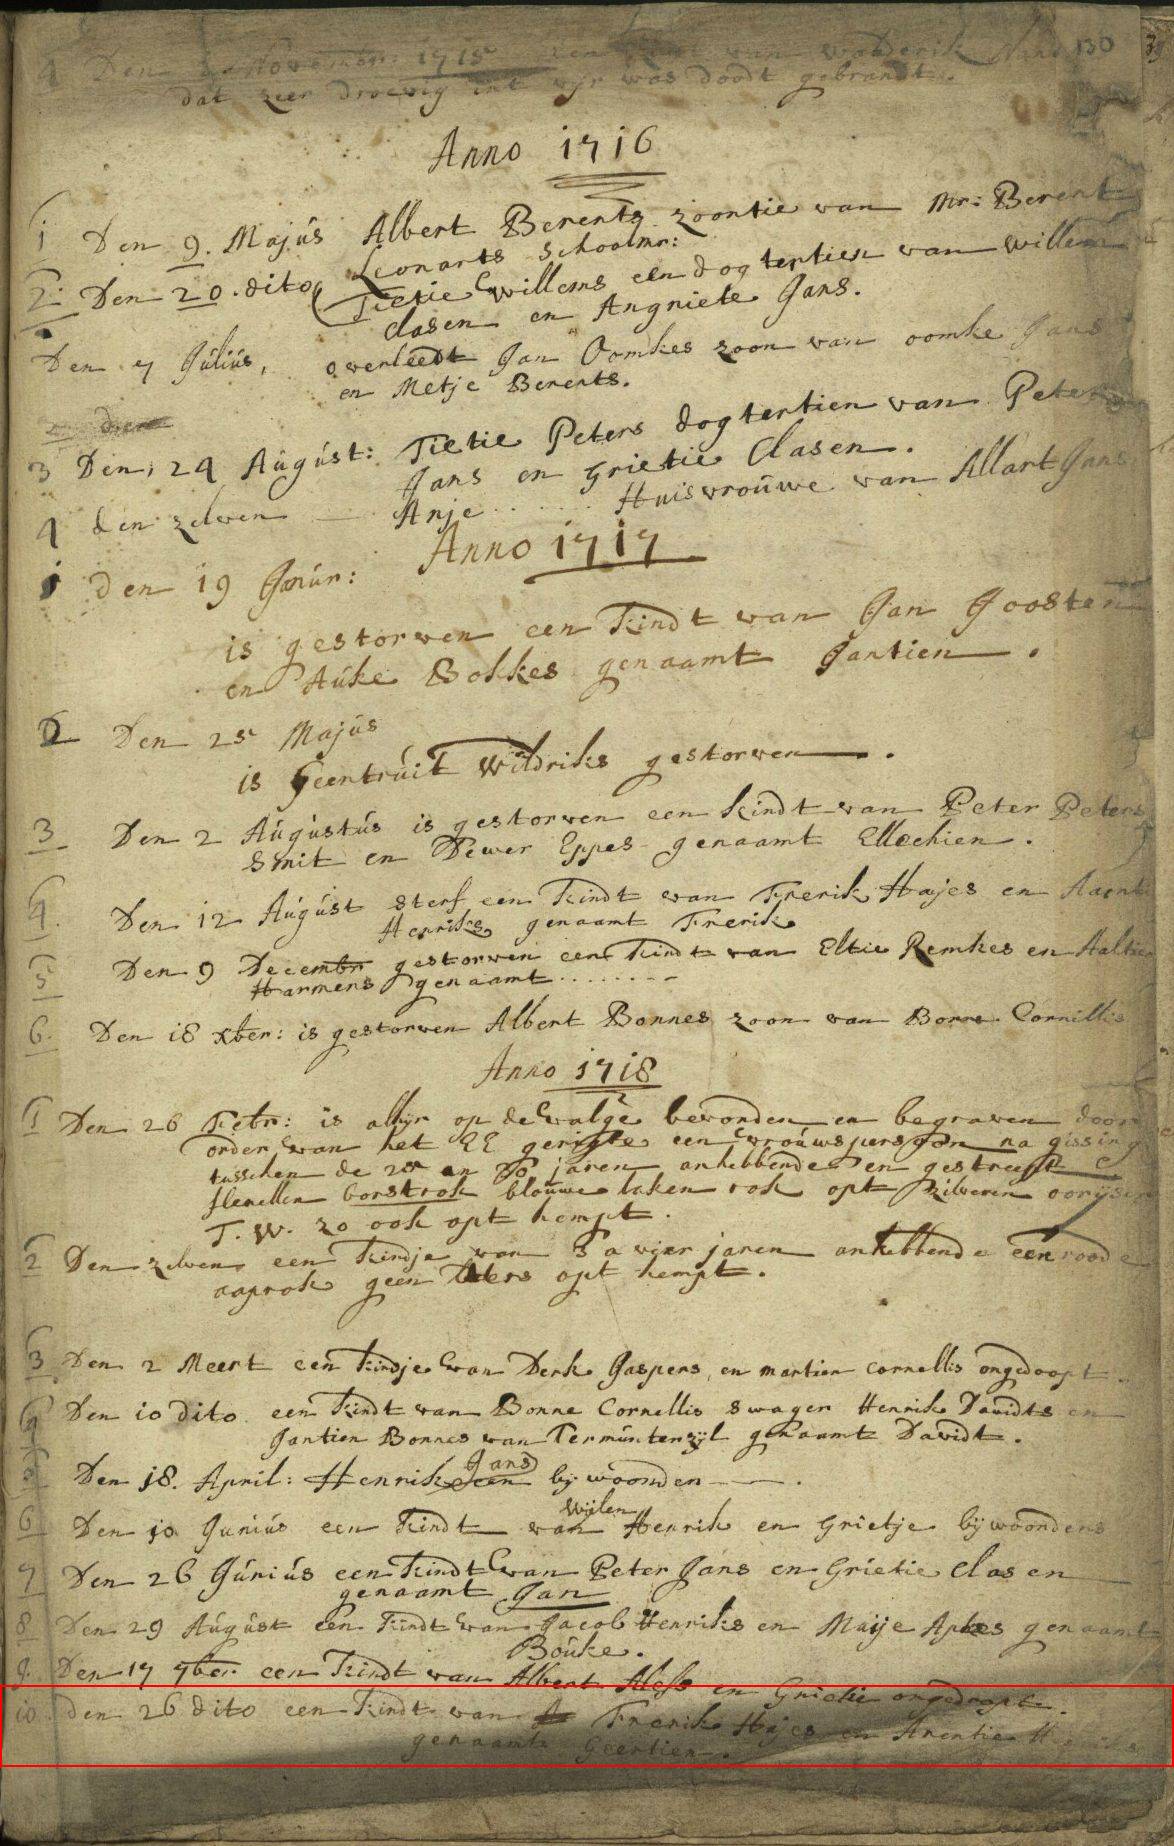 4 Den November: 1715 een van wolderik
dat zeer droevig int vijr was doodt gebrandt.
130
Anno 1716
1 Den 9. Majús Albert Berents zoontie van Mr: Berent
Leonarts Schoolmr:
2: Den 20. dito Tietie willems een dogtertien van willem
Clasen en Angniete Jans.
Den 7 Júliús, overleedt Jan Oomkes zoon van oomke Jans
en Metje Berents.
3 Den, 24 Aúgúst: Tietie Peters dogtertien van Peter
Jans en Grietie Clasen.
4 den zelven — Anje ...... Huisvroúwe van Allart Jans
Anno 1717
1 den 19 Janúr:
is gestorven een Kindt van Jan Joosten
en Aúke Bokkes genaamt Jantien.
2 Den 25 Majús
is Geentrúit Wildriks gestorven.
3 Den 2 Aúgústús is gestorven een kindt van Peter Peters
Smit en Dewer Eppes genaamt Ellechien.
4. Den 12 Aúgúst sterf een Kindt van Frerik Hajes en
Henriks genaamt Frerik
5 Den 9 Decembr gestorven een Kindt van Eltie Remkes en
Harmens genaamt ........
6. Den 18 xber: is gestorven Albert Bonnes zoon van Bonne Cornillis
Anno 1718
1 Den 26 Febr: is alhijr op de walge bevonden en begraven door
order van het EE gerigte een vroúwspersoon na gissing
tússchen de 25 en 30 jaren anhebbende en gestreept
flenellen borstrok bloúwe laken rok opt zilveren oorijser
T. W. zo ook opt hempt.
2 Den zelven een Kindje van 3 a vier jaren anhebbende een roode
aaprok geen letters opt hempt.
3 Den 2 Meert een Kindje van Derk Jaspers, en martien cornellis ongedoopt.
4 Den 10 dito een Kindt van Bonne Cornellis swager Henrik Davidts en
Jantien Bonnes van Termúnterzijl genaamt Davidt.
Jans
5 Den 18. April: Henrik een bijwoonden —.
wijlen
6 Den 10 Júniús een Kindt van Henrik en Grietje bijwoonders
7 Den 26 Júniús een Kindt van Peter Jans en Grietie Clasen
genaamt Jan
8 Den 29 Aúgúst een Kindt van Jacob Henriks en Maije genaamt
Boúke.
9. Den 17 9ber een Kindt van Albert en Grietie ongedoopt.
10. den 26 dito een Kindt van Frerik Hajes en Arentie
genaamt Geertien.